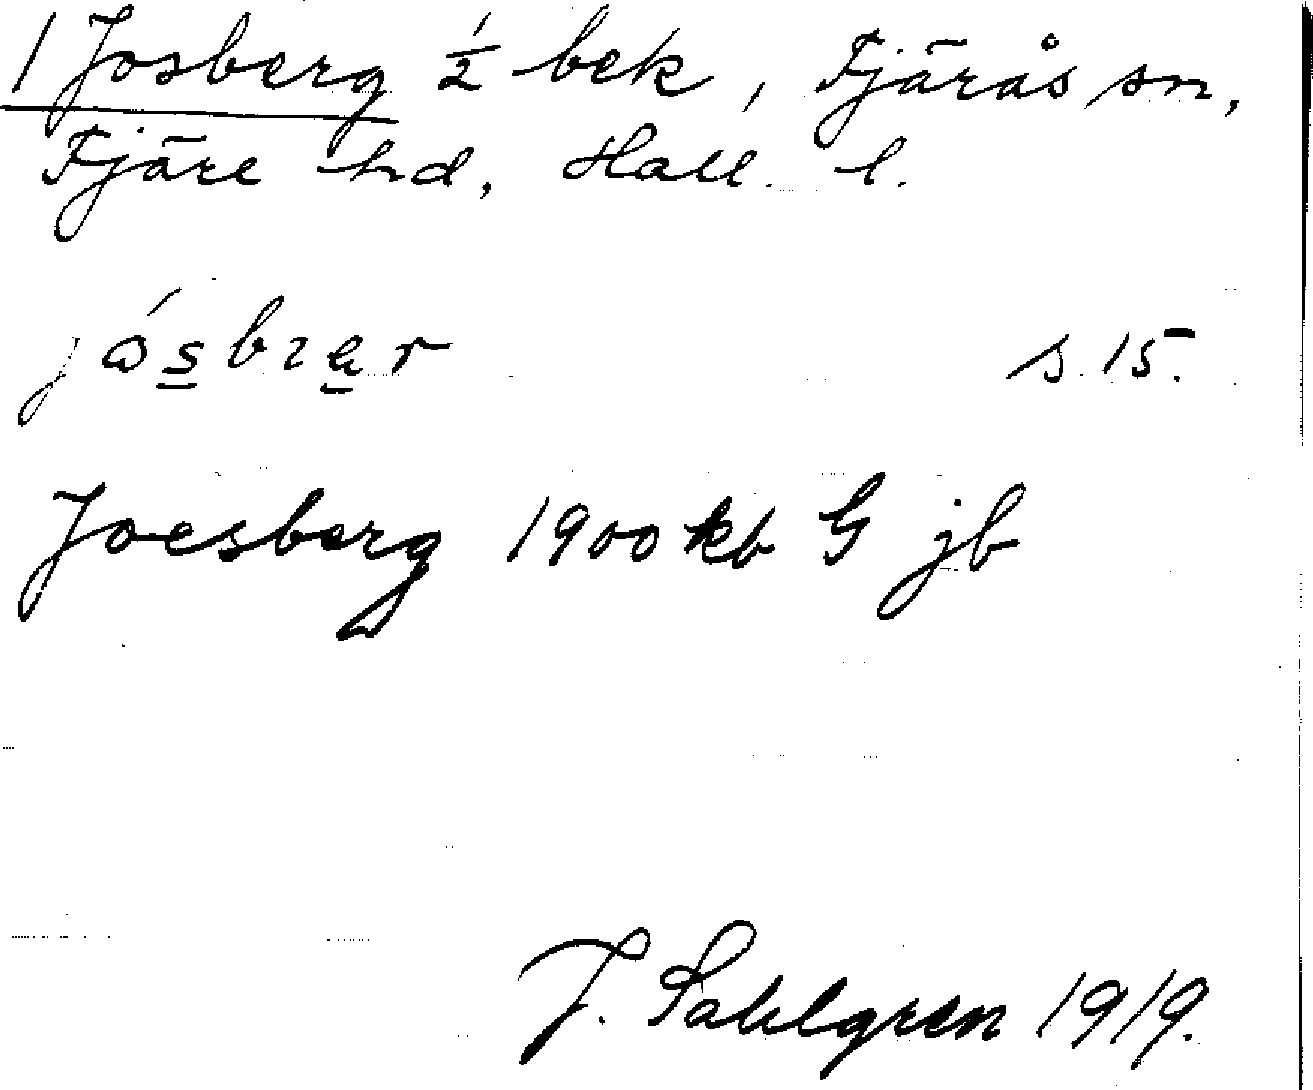 1 Josberg ½ bek, Fjärås sn,
Fjäre hd, Hall. l.
s. 15.
Joesberg 1900 kb G jb
J. Sahlgren 1919.